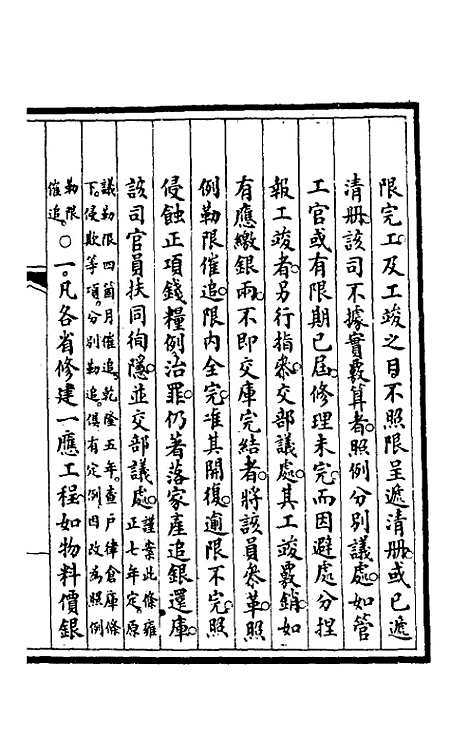 限完工。及工竣之日不照限呈遞清冊。或已遞
清冊。該司不據實覈算者。照例分別議處。如管
工官或有限期已屆。修理未完。而因避處分捏
報工竣者。另行指叅。交部議處。其工竣覈銷。如
有應繳銀兩。不即交庫完結者。將該員叅革。照
例勒限催追。限内全完。准其開復。逾限不完。照
侵蝕正項錢糧例治罪。仍著落家產追銀還庫。
該司官員扶同徇隱。並交部議處。謹案此條雍正七年定。原
議勒限四箇月催追。乾隆五年。查戶律倉庫條
下。侵欺等項。分別勒追。俱有定例。因改為照例
勒限催追。○一。凡各省修建一應工程。如物料價銀